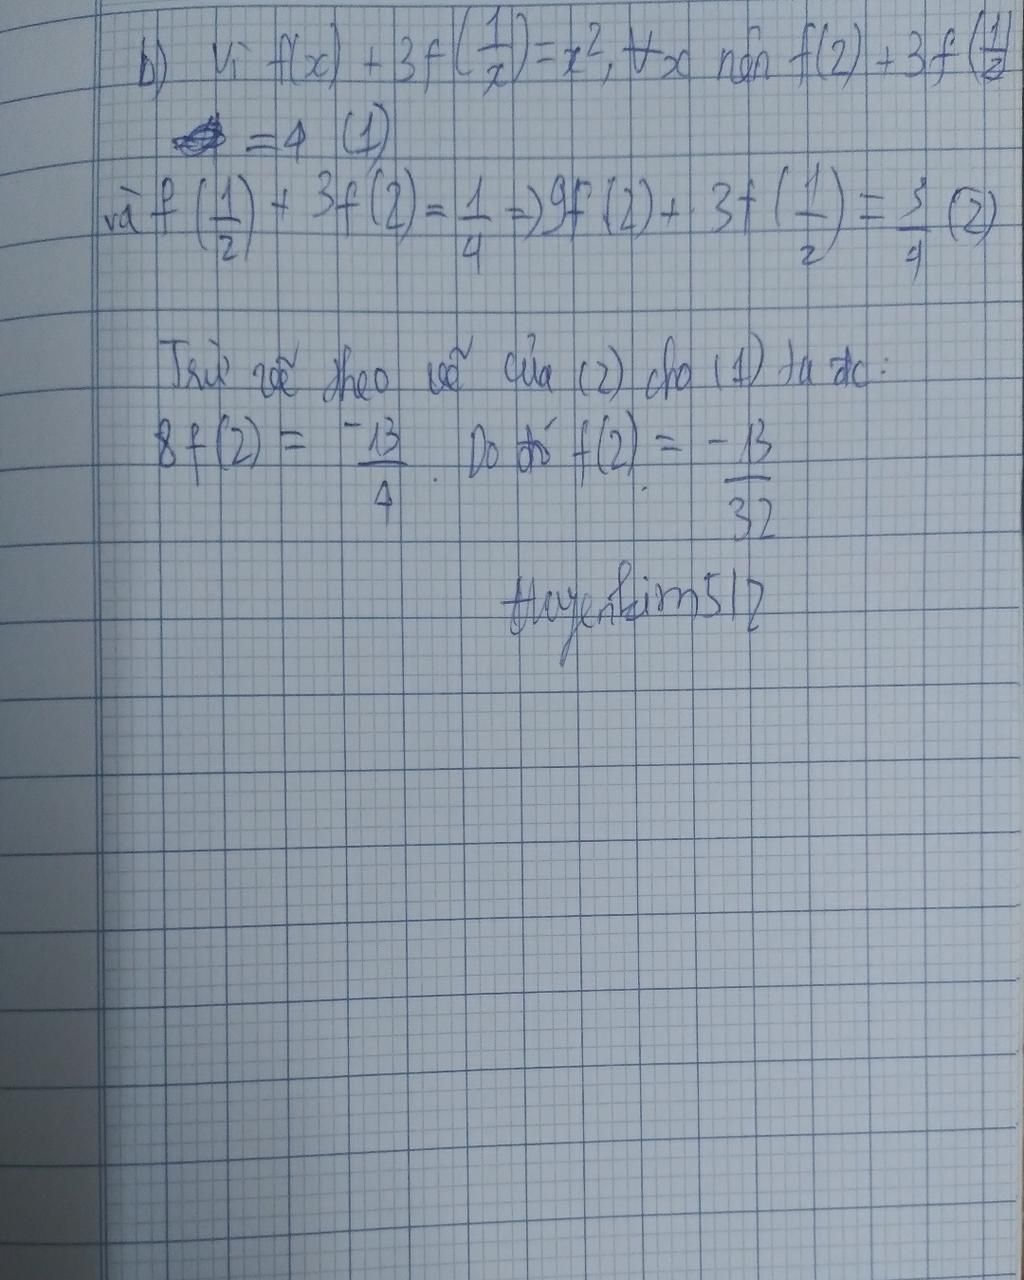 b) Vì f(x) + 3f(1/x) = x², ∀x nên f(2) + 3f(1/2)
= 4 (1)
và f(1/2) + 3f(2) = 1/4 => 9f(2) + 3f(1/2) = 3/4 (2)
Trừ vế theo vế của (2) cho (1) ta đc:
8f(2) = -13/4. Do đó f(2) = -13/32
Huyenkim512